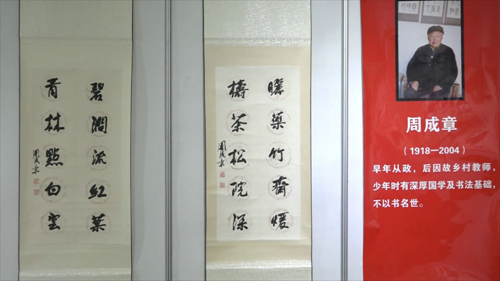 碧澗流紅葉
青林點白雲
周成章
曬藥竹齋煖
擣茶松院深
周成章
周成章
（1918－2004）
早年从政，后因故乡村教师，
少年时有深厚国学及书法基础，
不以书名世。